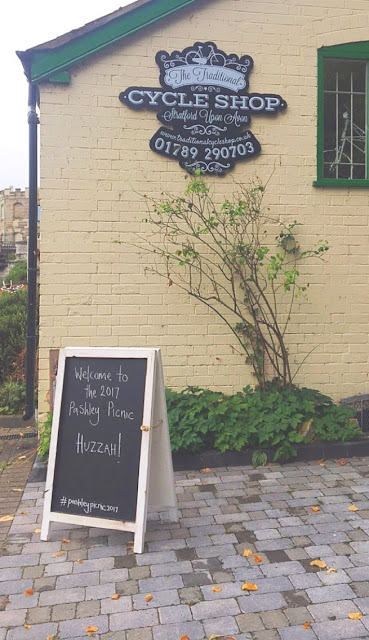 The Traditional
CYCLE SHOP
Stratford Upon Avon
www.traditionalcycleshop.co.uk
01789 290703
Welcome to
the 2017
Pashley Picnic
HUZZAH!
#pashleypicnic2017